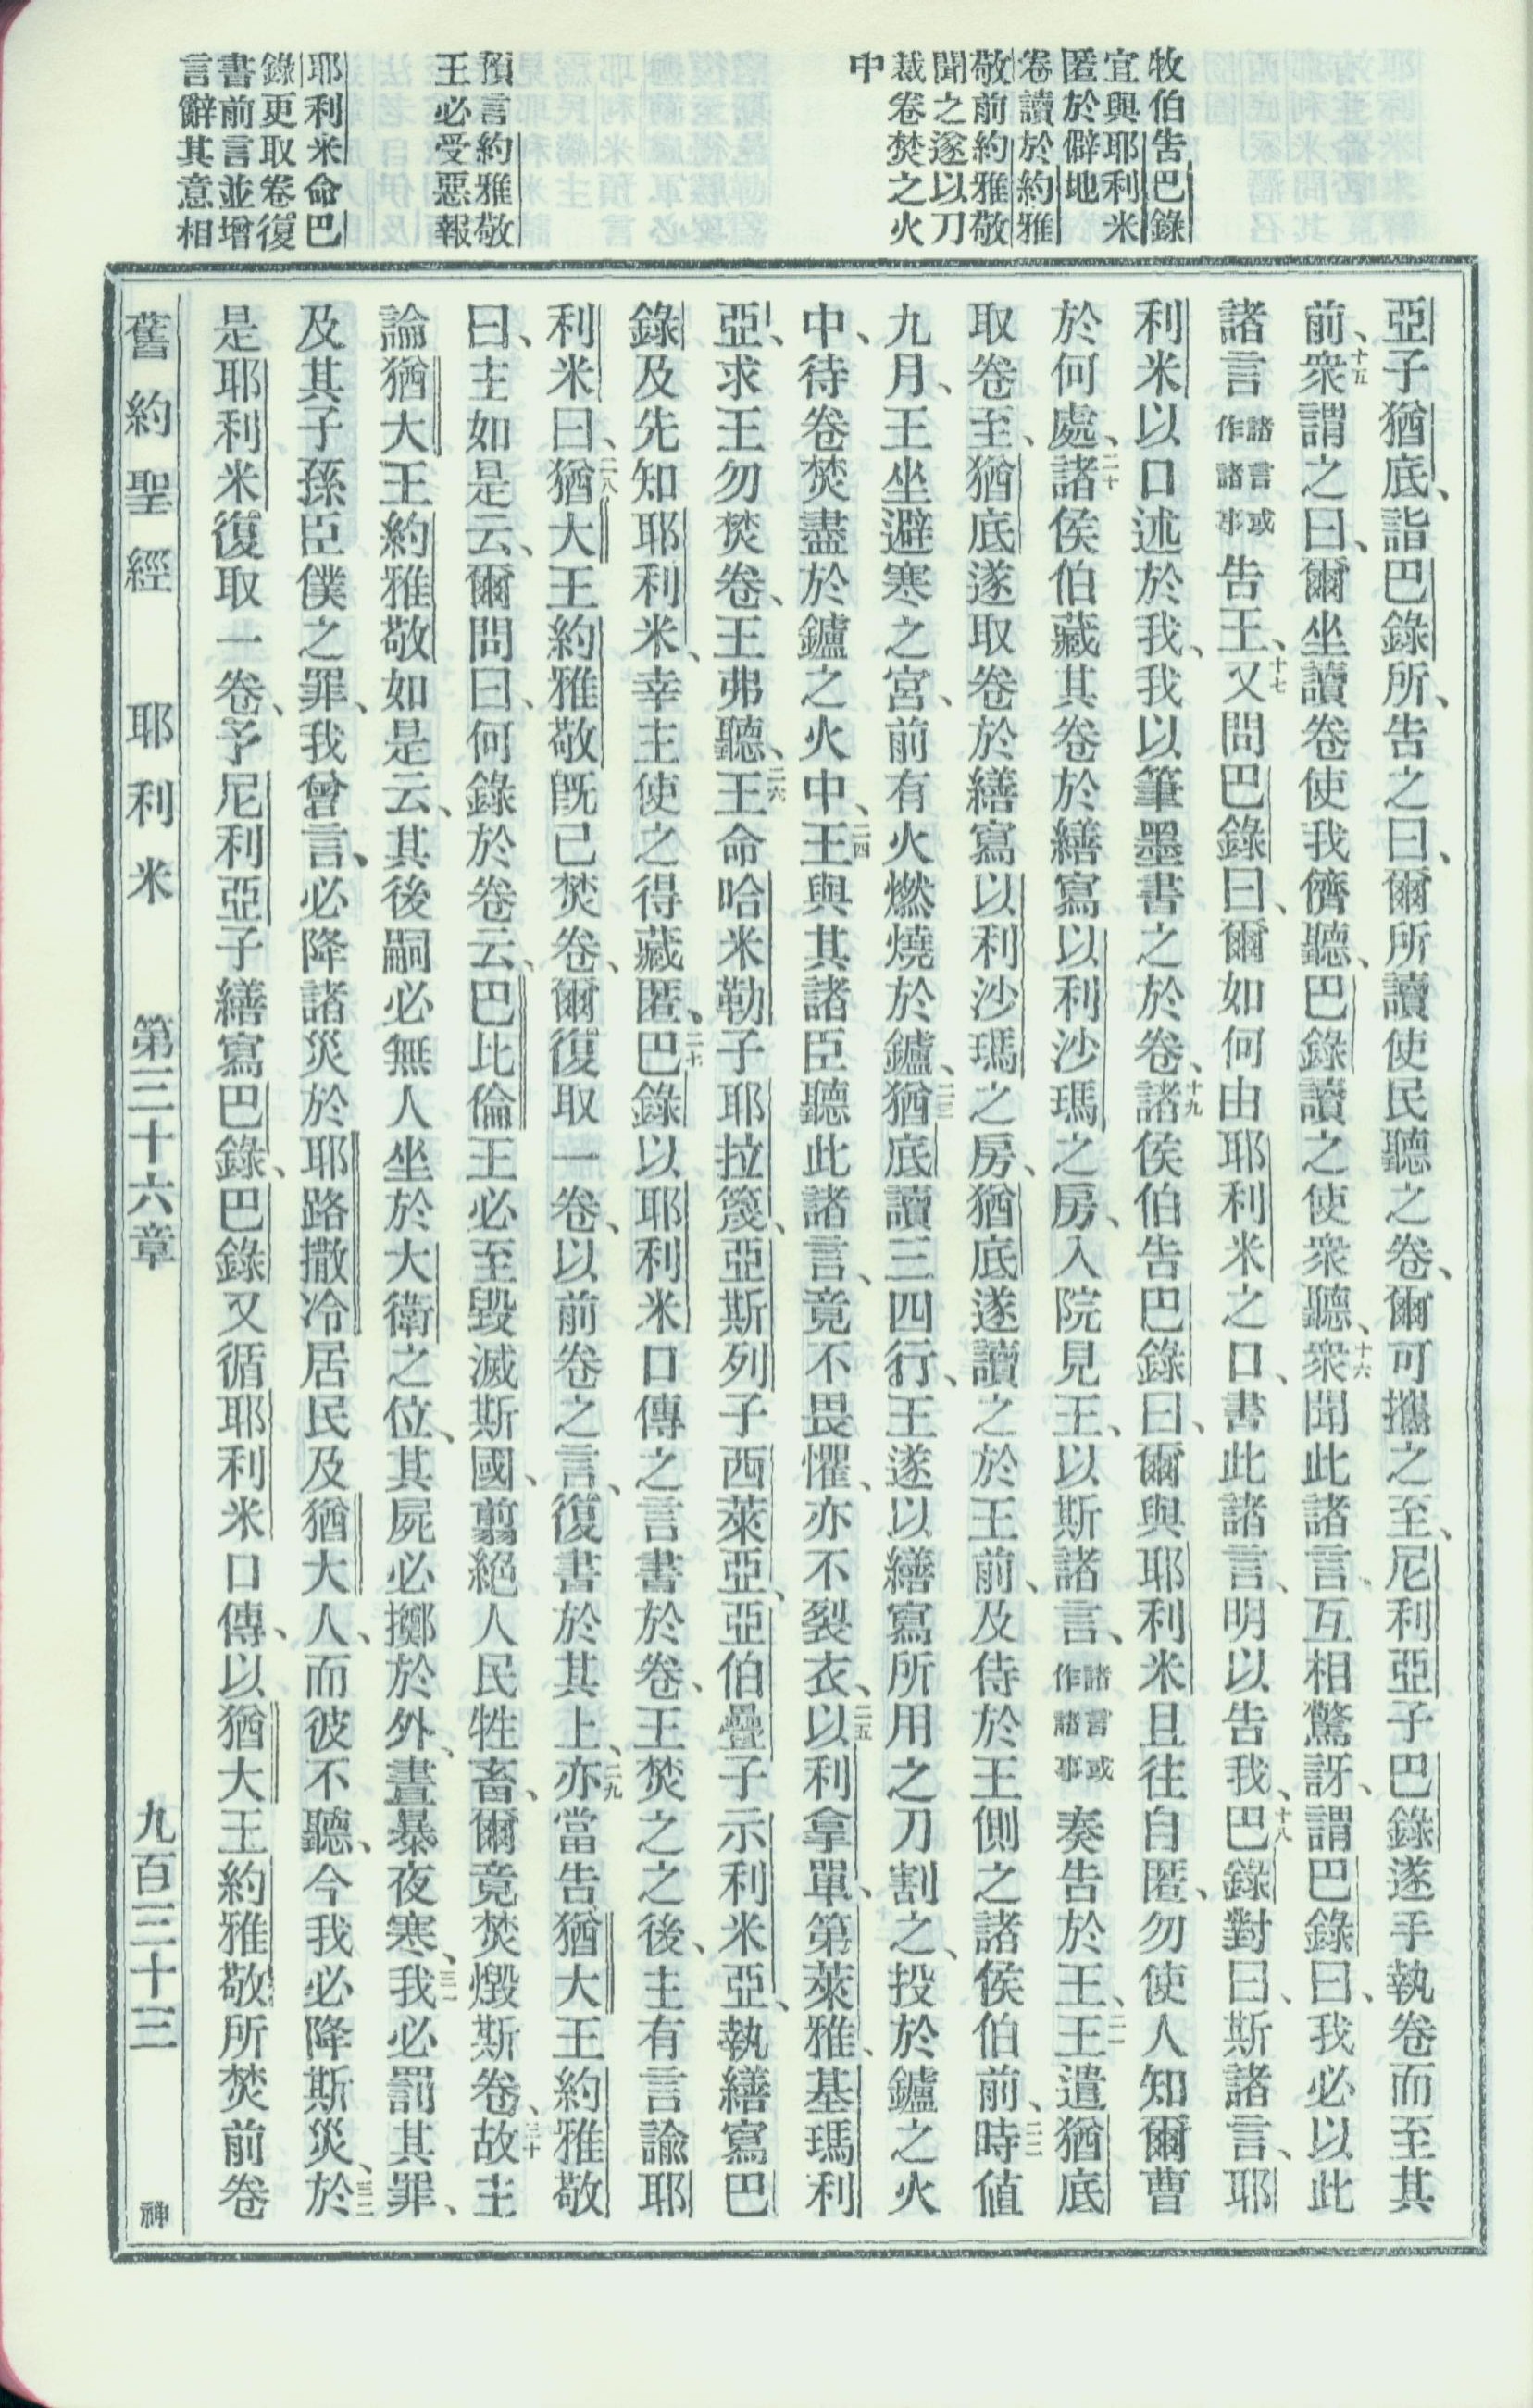 牧伯告巴錄
宜與耶利米
匿於僻地
卷讀於約雅
敬前約雅敬
聞之遂以刀
裁卷焚之火
中
預言約雅敬
王必受惡報
耶利米命巴
錄更取卷復
書前言並增
言辭其意相
亞子猶底、詣巴錄所、告之曰、爾所讀使民聽之卷、爾可攜之至、尼利亞子巴錄遂手執卷而至其
前、十五衆謂之曰、爾坐讀卷使我儕聽、巴錄讀之使衆聽、十六衆聞此諸言、互相驚訝、謂巴錄曰、我必以此
諸言諸言或作諸事告王、十七又問巴錄曰、爾如何由耶利米之口、書此諸言、明以告我、十八巴錄對曰、斯諸言、耶
利米以口述於我、我以筆墨書之於卷、十九諸侯伯告巴錄曰、爾與耶利米且往自匿、勿使人知爾曹
於何處、二十諸侯伯藏其卷於繕寫以利沙瑪之房、入院見王、以斯諸言、諸言或作諸事奏告於王、二一王遣猶底
取卷至、猶底遂取卷於繕寫以利沙瑪之房、猶底遂讀之於王前、及侍於王側之諸侯伯前、二二時値
九月、王坐避寒之宮、前有火燃燒於鑪、二三猶底讀三四行、王遂以繕寫所用之刀割之、投於鑪之火
中、待卷焚盡於鑪之火中、二四王與其諸臣聽此諸言、竟不畏懼、亦不裂衣、二五以利拿單、第萊雅、基瑪利
亞、求王勿焚卷、王弗聽、二六王命哈米勒子耶拉篾、亞斯列子西萊亞、亞伯疊子示利米亞、執繕寫巴
錄及先知耶利米、幸主使之得藏匿、二七巴錄以耶利米口傳之言書於卷、王焚之之後、主有言諭耶
利米曰、二八猶大王約雅敬旣已焚卷、爾復取一卷、以前卷之言、復書於其上、二九亦當告猶大王約雅敬
曰、主如是云、爾問曰、何錄於卷云、巴比倫王必至毀滅斯國、翦絕人民牲畜、爾竟焚燬斯卷、三十故主
論猶大王約雅敬如是云、其後嗣必無人坐於大衛之位、其屍必擲於外、晝暴夜寒、三一我必罰其罪、
及其子孫臣僕之罪、我曾言、必降諸災於耶路撒冷居民及猶大人、而彼不聽、今我必降斯災、三二於
是耶利米復取一卷、予尼利亞子繕寫巴錄、巴錄又循耶利米口傳、以猶大王約雅敬所焚前卷
舊約聖經 耶利米 第三十六章 九百三十三 神